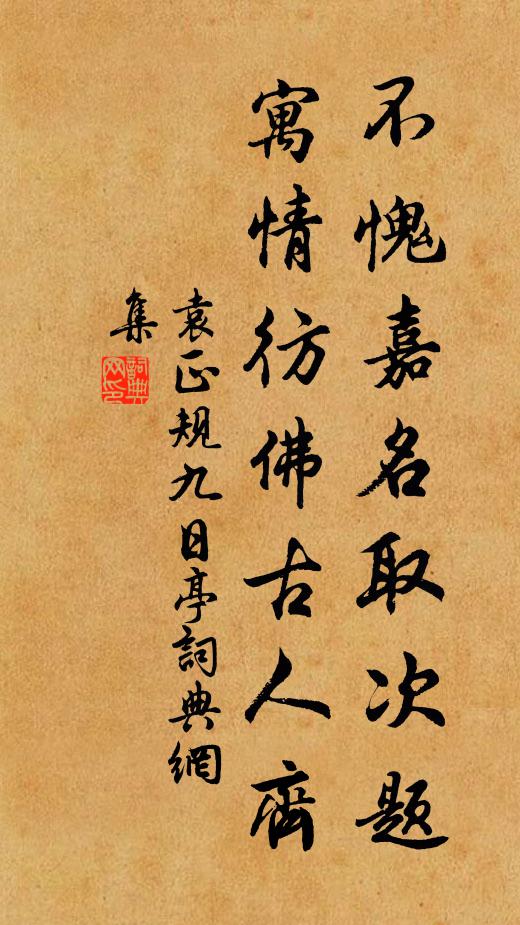 不愧嘉名取次題
寓情彷佛古人齊
袁正規九日亭詞典網
集
詞典網印